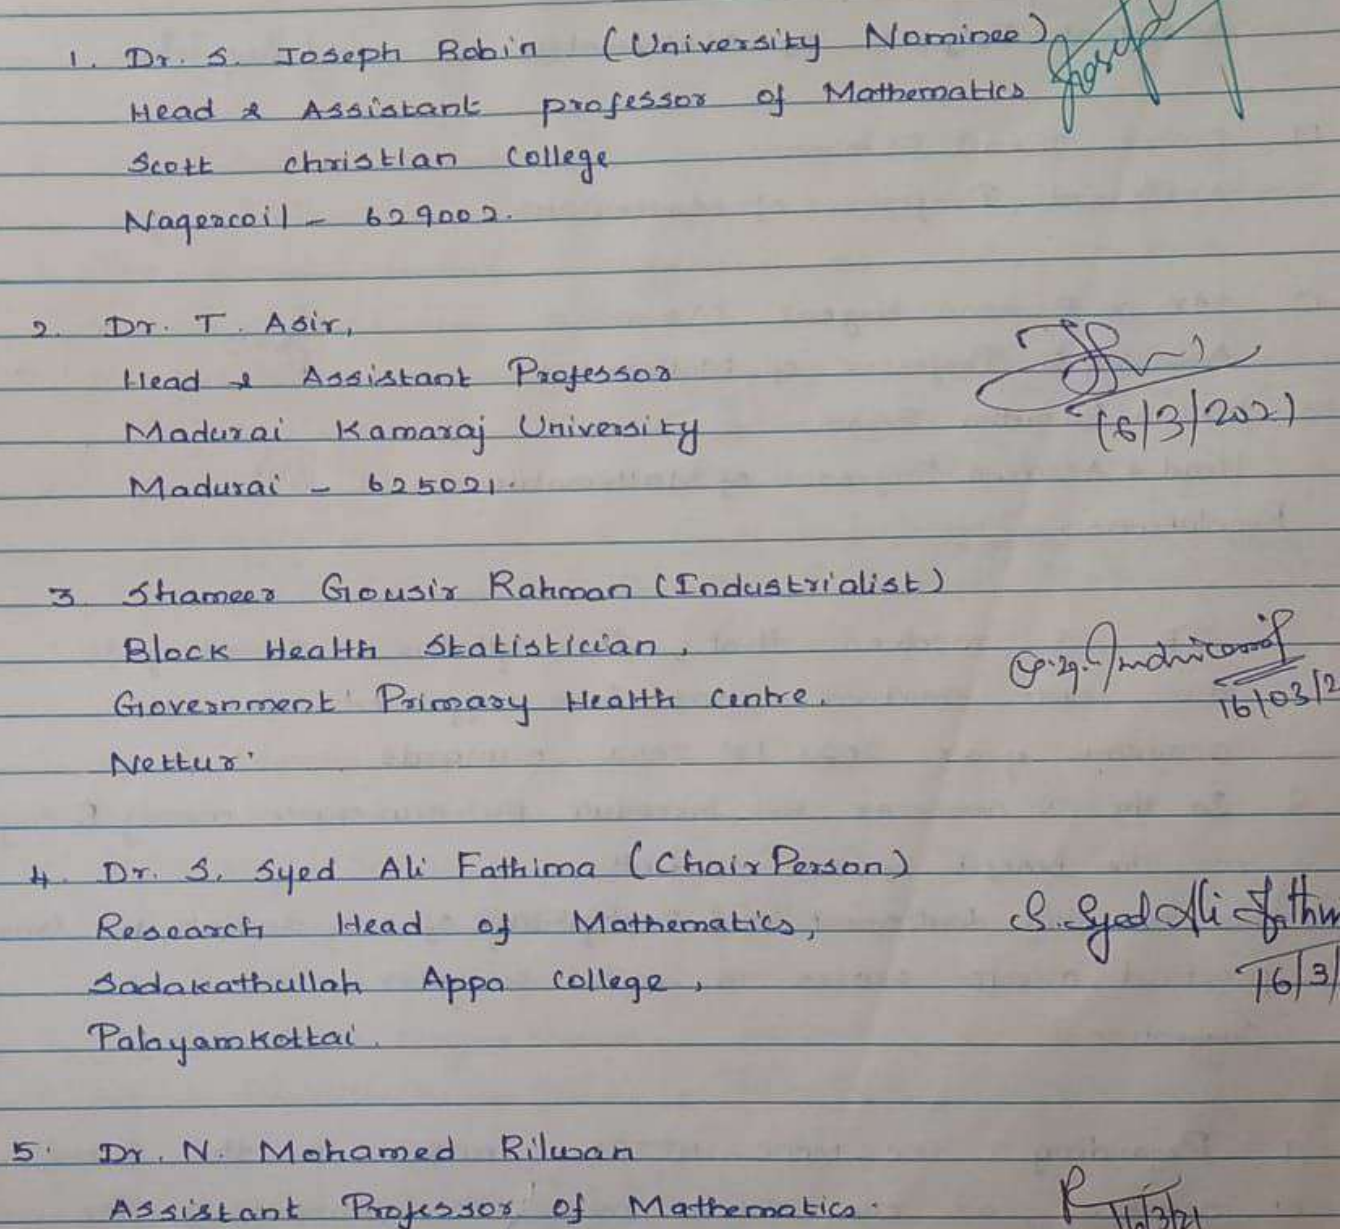 1. Dr. S. Joseph Robin (University Nominee)
Head & Assistant professor of Mathematics
Scott christian College
Nagercoil - 629002.
2. Dr. T. Asir,
Head & Assistant Professor
16/3/2021
Madurai Kamaraj University
Madurai - 625021.
3. Shameer Gousir Rahman (Industrialist)
Block Health Statistician,
Government Primary Health Centre.
16/03/2
Nettur.
4. Dr. S. Syed Ali Fathima (Chair Person)
Research Head of Mathematics,
S. Syed Ali Fathim
Sadakathullah Appa College,
16/3/
Palayamkottai.
5. Dr. N. Mohamed Rilwan
Assistant Professor of Mathematics.
16/3/21